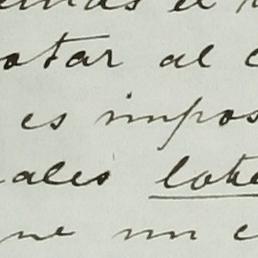 otar al c
es impos
ales lote
ue un c